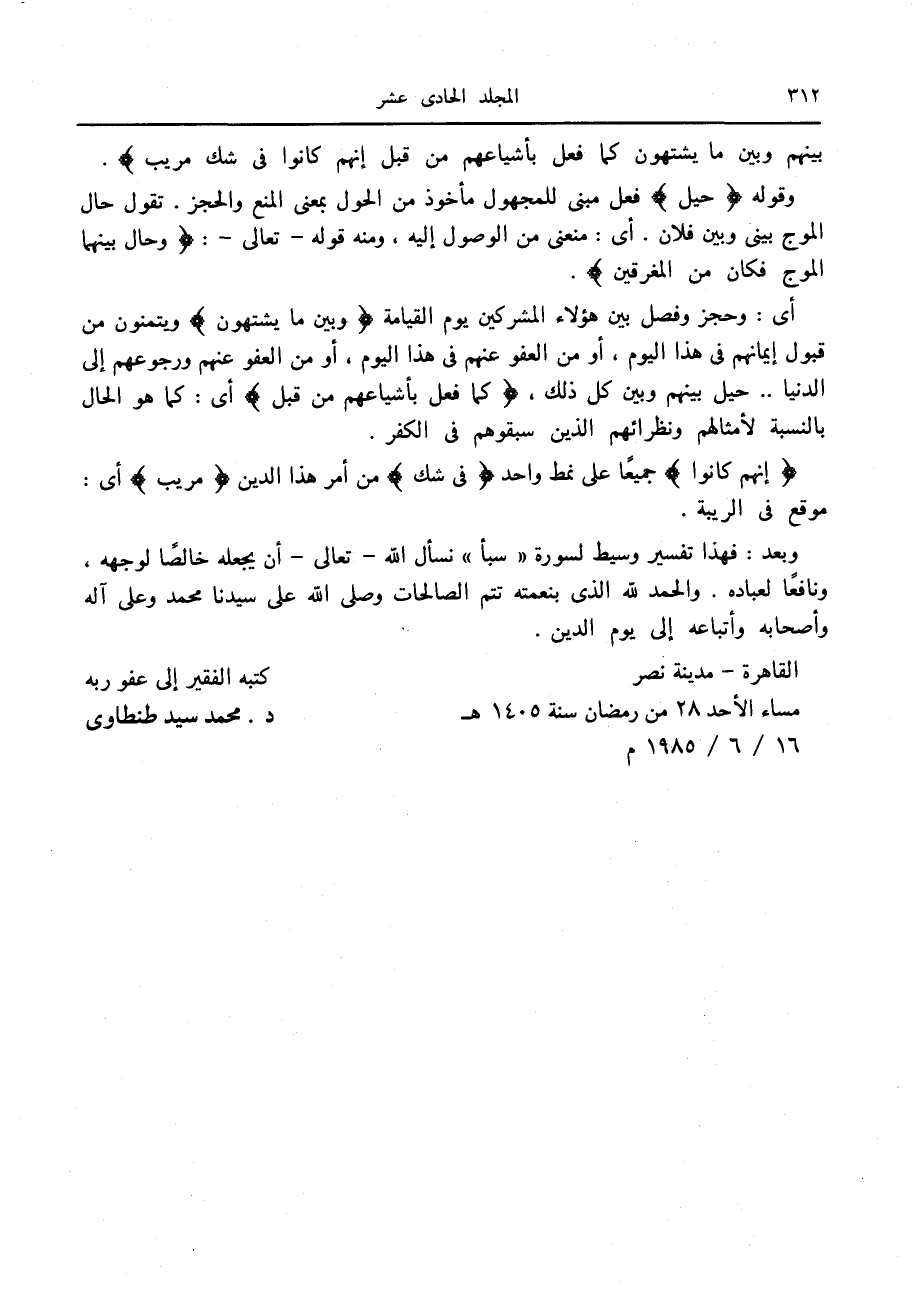 ٣١٢ المجلد الحادى عشر
بينهم وبين ما يشتهون كما فعل بأشياعهم من قبل إنهم كانوا فى شك مريب ﴾ .
وقوله ﴿ حيل ﴾ فعل مبنى للمجهول مأخوذ من الحول بمعنى المنع والحجز . تقول حال
الموج بينى وبين فلان . أى : منعنى من الوصول إليه ، ومنه قوله – تعالى – : ﴿ وحال بينهما
الموج فكان من المغرقين ﴾ .
أى : وحجز وفصل بين هؤلاء المشركين يوم القيامة ﴿ وبين ما يشتهون ﴾ ويتمنون من
قبول إيمانهم فى هذا اليوم ، أو من العفو عنهم فى هذا اليوم ، أو من العفو عنهم ورجوعهم إلى
الدنيا .. حيل بينهم وبين كل ذلك ، ﴿ كما فعل بأشياعهم من قبل ﴾ أى : كما هو الحال
بالنسبة لأمثالهم ونظرائهم الذين سبقوهم فى الكفر .
﴿ إنهم كانوا ﴾ جميعًا على نمط واحد ﴿ فى شك ﴾ من أمر هذا الدين ﴿ مريب ﴾ أى :
موقع فى الريبة .
وبعد : فهذا تفسير وسيط لسورة « سبأ » نسأل الله – تعالى – أن يجعله خالصًا لوجهه ،
ونافعًا لعباده . والحمد لله الذى بنعمته تتم الصالحات وصلى الله على سيدنا محمد وعلى آله
وأصحابه وأتباعه إلى يوم الدين .
القاهرة – مدينة نصر كتبه الفقير إلى عفو ربه
مساء الأحد ٢٨ من رمضان سنة ١٤٠٥ هـ د . محمد سيد طنطاوى
١٦ / ٦ / ١٩٨٥ م